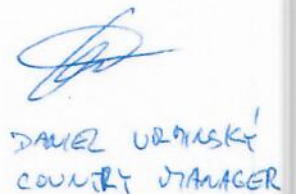 DANIEL URMINSKÝ
COUNTRY MANAGER